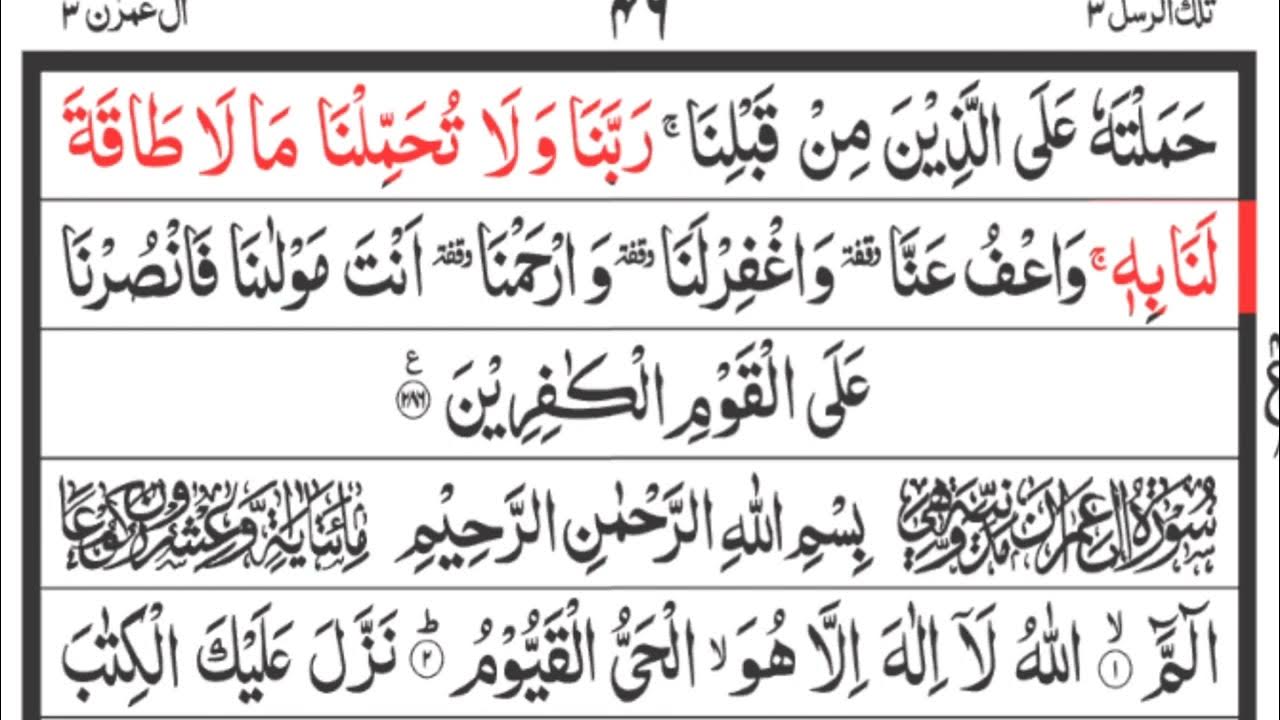 تلك الرسل ٣ ٤٦ اٰل عمرٰن ٣
حَمَلْتَهٗ عَلَى الَّذِيْنَ مِنْ قَبْلِنَا ۚ رَبَّنَا وَلَا تُحَمِّلْنَا مَا لَا طَاقَةَ
لَنَا بِهٖ ۚ وَاعْفُ عَنَّا وقفة وَاغْفِرْ لَنَا وقفة وَارْحَمْنَا وقفة اَنْتَ مَوْلٰىنَا فَانْصُرْنَا
عَلَى الْقَوْمِ الْكٰفِرِيْنَ ع ﴿۲۸۶﴾
سُوْرَةُ اٰلِ عِمْرَانَ مَدَنِيَّةٌ وَّهِيَ بِسْمِ اللّٰهِ الرَّحْمٰنِ الرَّحِيْمِ مِائَتَا اٰيَةٍ وَّعِشْرُوْنَ رُكُوْعًا
الٓمّٓ ۙ﴿۱﴾ اللّٰهُ لَاۤ اِلٰهَ اِلَّا هُوَ ۙ الْحَيُّ الْقَيُّوْمُ ؕ﴿۲﴾ نَزَّلَ عَلَيْكَ الْكِتٰبَ